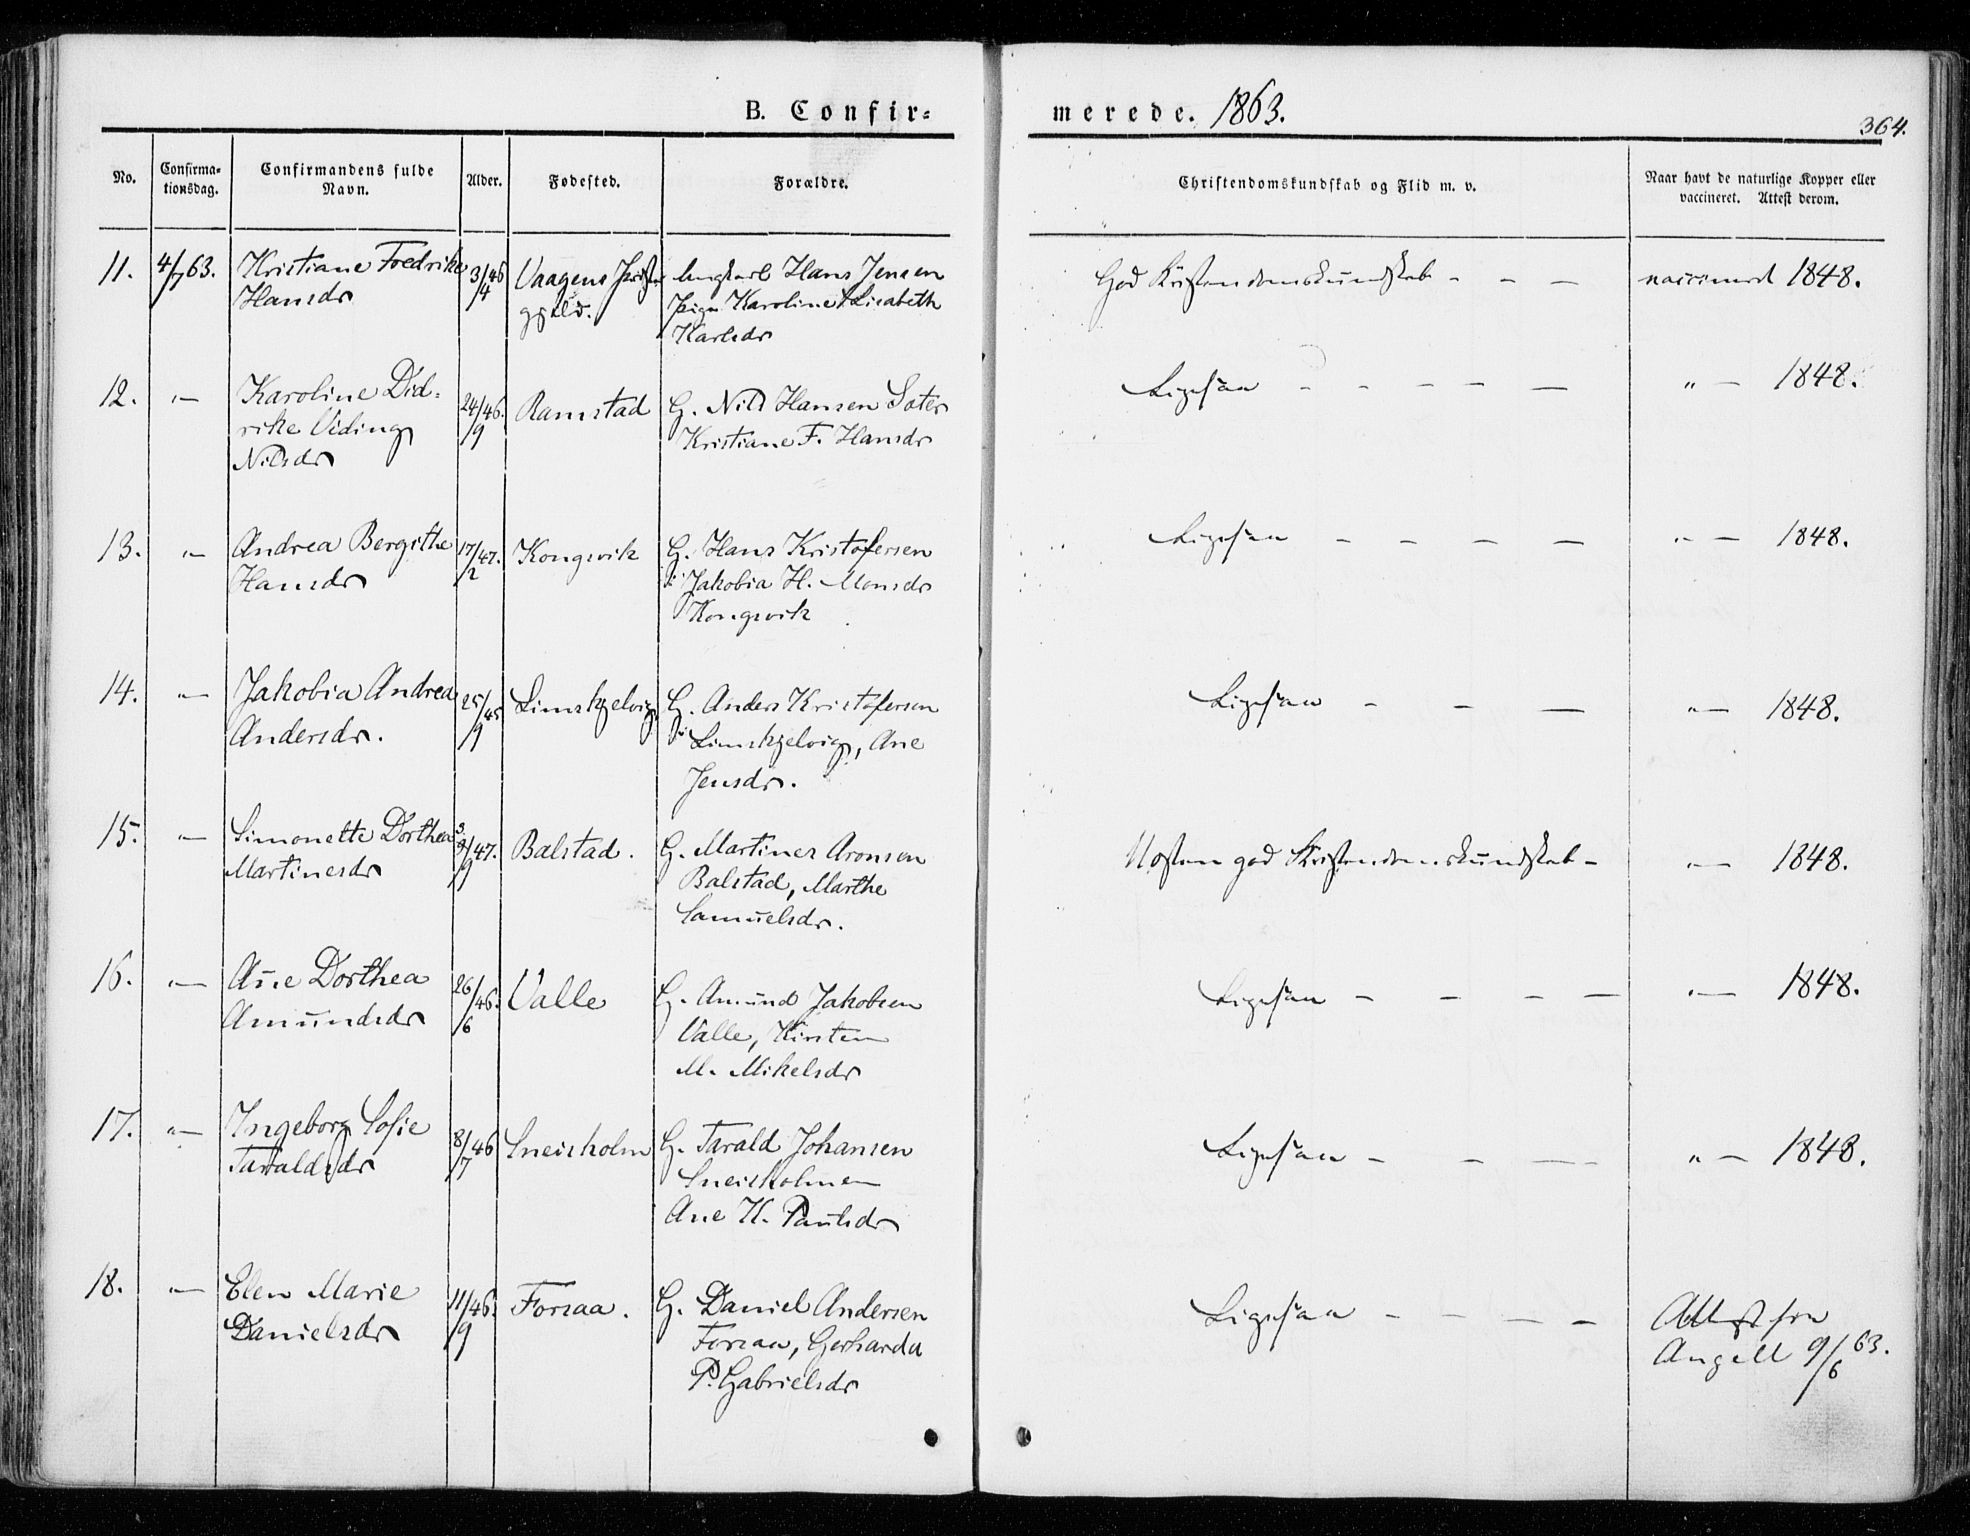 B. Confir=
merede. 1863.
364.
No.
Confirma=
tionsdag.
Confirmandens fulde
Navn.
Alder.
Fødested.
Forældre.
Christendomskundskab og Flid m. v.
Naar havt de naturlige Kopper eller
vaccineret. Attest derom.
11. 4/7 63. Kristiane Fredrike
Hansdr
3/4 46
Vaagens
gjeld.
Ungkarl Hans Jensen
Pige Karoline Elisabeth
Karlsdr
God Kristendomskundskab - - -
vaccineret 1848.
12. "-
Karoline Did=
rike Viding
Nilsdr
24/9 46.
Ramstad
G. Nils Hansen Sater
Kristiane F. Hansdr
Ligesaa - - - - -
" - 1848.
13. "-
Andrea Bergithe
Hansdr
17/2 47.
Kongsvik
G. Hans Kristofersen
Jakobia H. Monsdr
Kongsvik
Ligesaa - - - -
" - 1848.
14. "-
Jakobia Andrea
Andersdr.
25/9 45
Limskjelvig
G. Anders Kristofersen
Limskjelvig, Ane
Jensdr.
Ligesaa - - -
" - 1848.
15. "-
Simonette Dorthea
Martinesdr
/9 47.
Balstad.
G. Martines Aronsen
Balstad, Marthe
Samuelsdr.
Nesten god Kristendomskundskab -
" - 1848.
16. "-
Ane Dorthea
Amundsdr
26/6 46.
Valle
G. Amund Jakobsen
Valle, Kirsten
M. Mikelsdr
Ligesaa - - - -
" - 1848.
17. "-
Ingeborg Sofie
Taraldsdr
8/7 46
Sneisholm
G. Tarald Johansen
Sneisholmen
Ane K. Paulsdr
Ligesaa - - - -
" - 1848.
18. "-
Elen Marie
Danielsdr
11/9 46.
Forsaa.
G. Daniel Andersen
Forsaa, Gerharda
P. Gabrielsdr
Ligesaa - - - -
Attest fra
Angell 9/6 63.